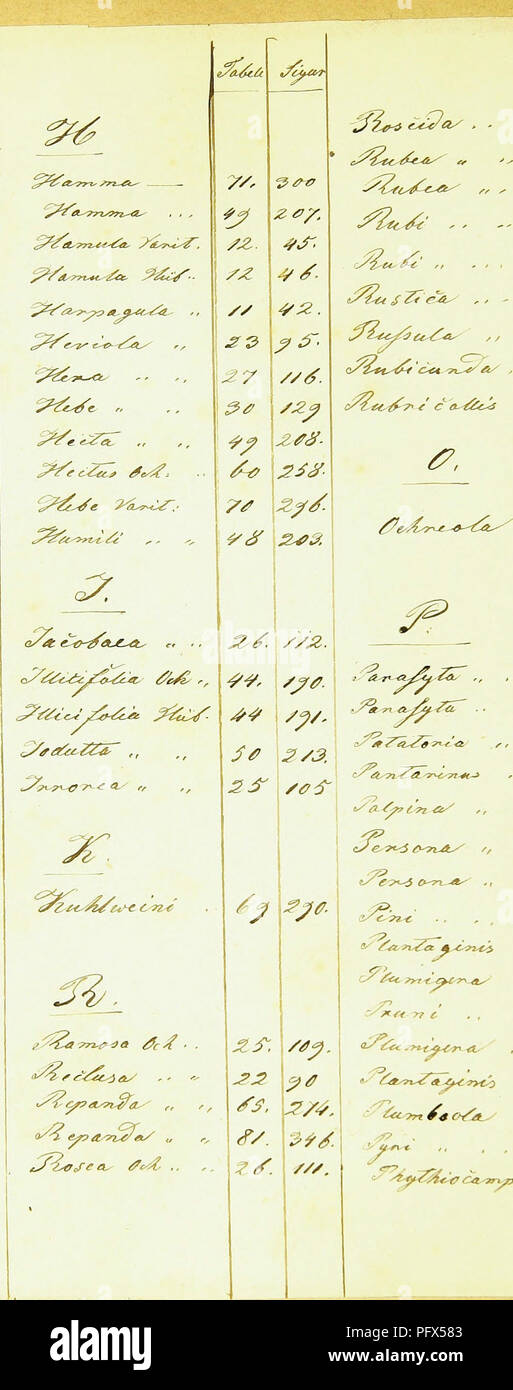 Tabele Figur
H
Hamma — 71. 300
Hamma ... 49 207.
Hamula Varit. 12. 45.
Hamula Hüb.. 12 46.
Harpagula " 11 42.
Heviola " 23 95.
Hera " " 27 116.
Hebe " " 30 129
Hecta " " 49 208.
Hectus Och. .. 60 258.
Hebe Varit: 70 296.
Humili " " 48 203.
J.
Jacobaea " .. 26. 112.
Illicifolia Och ., 44. 190.
Illicifolia Hüb. 44 191.
Jodutta " " 50 213.
Irrorea " " 25 105
K.
Kuhlweini . 69 290.
R.
Ramosa Och .. 25. 109.
Reclusa .. " 22 90
Repanda " " 65. 274.
Repanda " " 81. 346.
Rosea Och .. .. 26. 111.
Roscida ..
Rubea " "
Rubea " "
Rubi .. "
Rubi " ...
Rustica .. "
Russula "
Rubicunda .
Rubricollis
O.
Ochreola
P.
Parasyta " .
Parasyta ..
Patatoria "
Pantarinus .
Palpina "
Persona "
Persona "
Pini .. .
Plantaginis
Plumigera
Pruni ..
Plumigera .
Plantaginis
Plumbeola
Pyri " ..
Phythiocamp
alamy
Image ID: PFX583
www.alamy.com